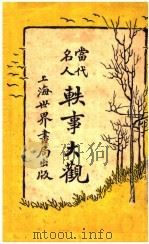 當代
名人
軼事大觀
上海世界書局出版